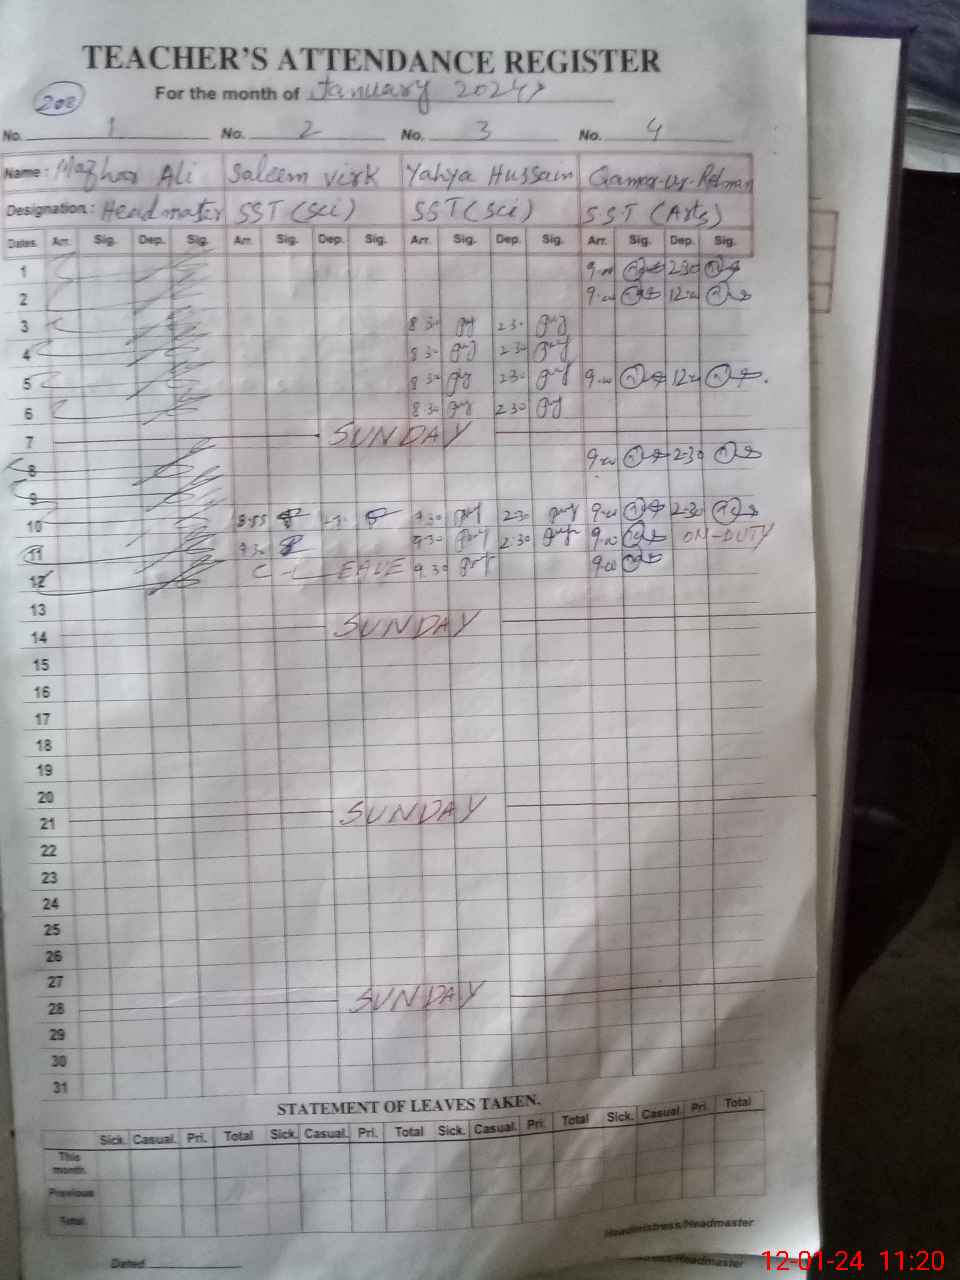 TEACHER'S ATTENDANCE REGISTER
202
For the month of January 2024
No. 1 No. 2 No. 3 No. 4
Name: Mazhar Ali Saleem virk Yahya Hussain Qamar-ur-Rehman
Designation: Headmaster SST (Sci) SST (Sci) S.S.T (Arts)
Dates. Arr. Sig. Dep. Sig. Arr. Sig. Dep. Sig. Arr. Sig. Dep. Sig. Arr. Sig. Dep. Sig.
1 9.00 2.30
2 9.00 12.00
3 8 30 2 30
4 8 30 2 30
5 8 30 2 30 9.00 12.00
6 8 30 2 30
7 SUNDAY
8 9.00 2-30
9
10 8.55 9.30 2.30 9.00 2.30
11 9.30 9.30 2.30 9.00 ON-DUTY
12 C-LEAVE 9.30 9.00
13
14 SUNDAY
15
16
17
18
19
20
21 SUNDAY
22
23
24
25
26
27
28 SUNDAY
29
30
31
STATEMENT OF LEAVES TAKEN.
Sick. Casual. Pri. Total Sick. Casual. Pri. Total Sick. Casual. Pri. Total Sick. Casual. Pri. Total
This month.
Previous
Total
Headmistress/Headmaster
Dated
Headmaster
12-01-24 11:20